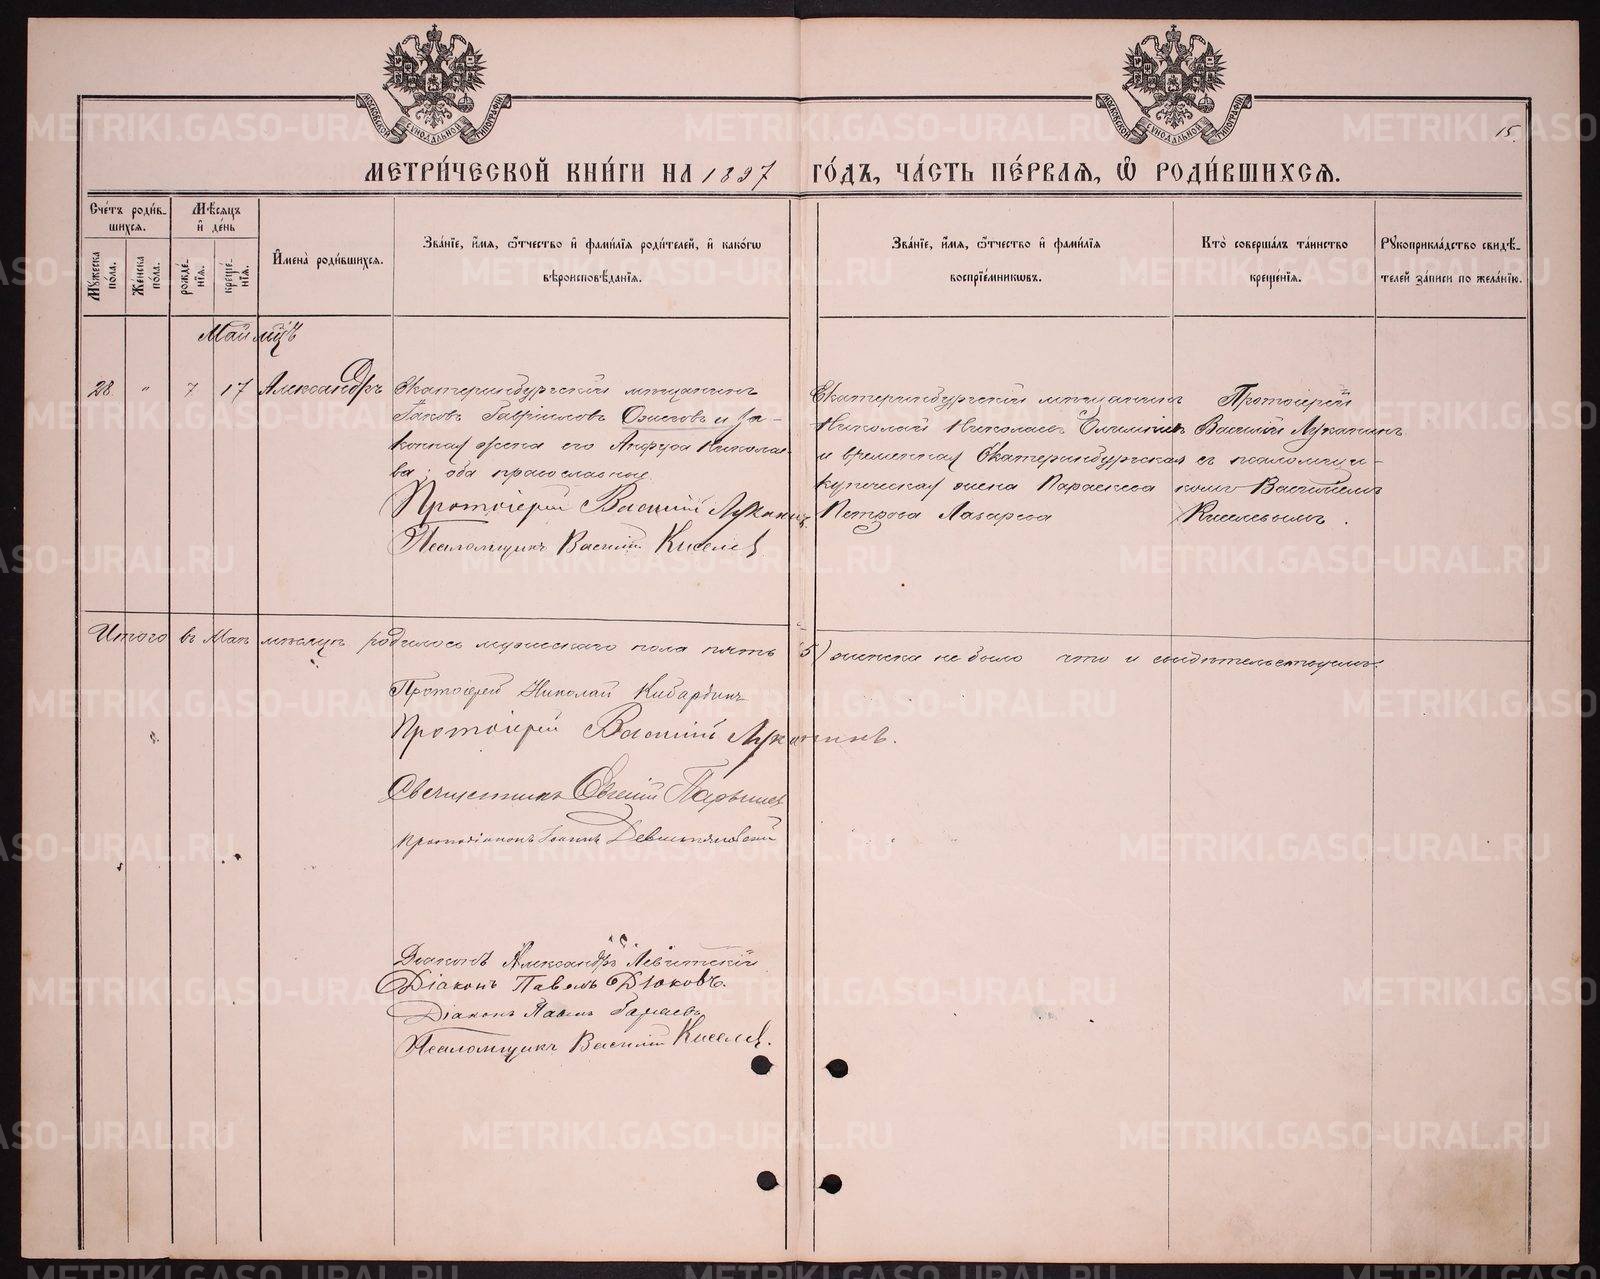 МОСКОВСКОЙ СѴНОДАЛЬНОЙ ТИПОГРАФІИ
МОСКОВСКОЙ СѴНОДАЛЬНОЙ ТИПОГРАФІИ
15.
МЕТРИ́ЧЕСКОЙ КНИ́ГИ НА 1897 ГО́ДЪ, ЧА́СТЬ ПЕ́РВАѦ, Ѽ РОДИ́ВШИХСѦ.
Сче́тъ роди́в-
шихсѧ.
Мѣ́сѧцъ
и҆ де́нь
Мꙋ́жеска
по́ла.
Же́нска
по́ла.
рожде́-
нїѧ.
креще́-
нїѧ.
И҆мена̀ роди́вшихсѧ.
Зва́нїе, и҆́мѧ, ѻ҆́тчество и҆ фами́лїѧ роди́телей, и҆ како́гѡ
вѣроисповѣ́данїѧ.
Зва́нїе, и҆́мѧ, ѻ҆́тчество и҆ фами́лїѧ
воспрїе́мникѡвъ.
Кто̀ соверша́лъ та́инство
креще́нїѧ.
Рꙋкоприкла́дство свидѣ́-
телей за́писи по жела́нїю.
Май мцъ
28 " 7 17 Александръ
Екатеринбургскій мѣщанинъ
Іаковъ Гавріиловъ Ожеговъ и за-
конная жена его Анфуса Николае-
ва; оба православные.
Протоіерей Василій Луканинъ
Псаломщикъ Василій Киселев
Екатеринбургскій мѣщанинъ
Николай Николаевъ
и временная Екатеринбургская
купеческая жена Параскева
Петрова Лазарева
Протоіерей
Василій Луканинъ
съ псаломщи-
комъ Василіемъ
Киселевымъ.
Итого въ Маѣ мѣсяцѣ родилось мужескаго пола пять (5) женска не было что и свидѣтельствуемъ:
Протоіерей Николай Кибардинъ
Протоіерей Василій Луканинъ.
Священникъ Евгеній
Протодіаконъ Іоаннъ
Діаконъ Александръ Левитскій
Діаконъ Павелъ Дюковъ.
Діаконъ
Псаломщикъ Василій Киселев.
METRIKI.GASO-URAL.RU